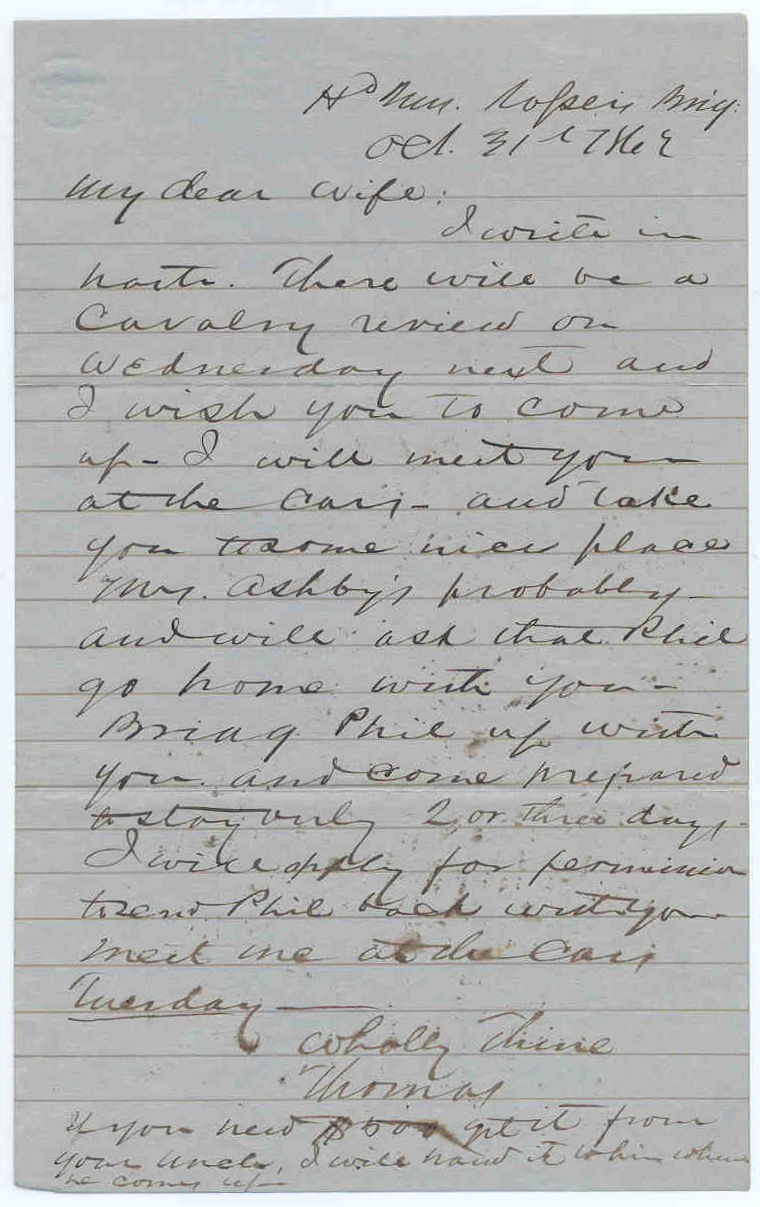 Hd Qrs. Rosser's Brig:
Oct. 31st 1863
My dear Wife:
I write in
haste. There will be a
Cavalry review on
Wednesday next and
I wish you to come
up - I will meet you
at the Cars - and take
you to some nice place
Mrs. Ashby's probably -
and will ask that Phil
go home with you -
Bring Phil up with
you and come prepared
to stay only 2 or three days -
I will apply for permission
to send Phil back with you
Meet me at the Cars
Tuesday —
Wholly Thine
Thomas
If you need $500 get it from
your Uncle, I will hand it to him when
he comes up -